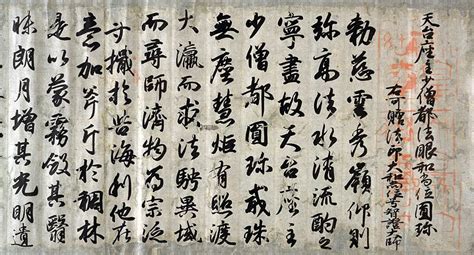 天台座主少僧都法眼和尚位圓珎
右可贈法印大和尚位号智證大師
勅慈雲秀嶺仰則
弥高法水清流酌之
寧盡故天台座主
少僧都圓珎戒珠
無塵慧炬有照渡
大瀛而求法騁異域
而尋師濟物爲宗泛
寸於苦海利他在
意加斧斤於稠林
是以蒙霧斂其翳
昧朗月増其光明遺